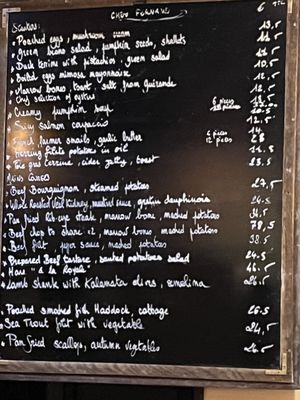 CHEZ FERNAND
Starters:
* Poached eggs, mushroom cream 13,5
* Green beans salad, pumpkin seeds, shallots
* Duck terrine with pistachio, green salad
* Boiled eggs mimosa mayonnaise 10,5
* Marrow bones, toast, salt from Guérande 12,5
* Chef selection of oysters
* Creamy pumpkin soup
salmon carpaccio
French farmer snails, garlic butter 6 pieces 14
12 pieces 28
Herring filets potatoes in oil 11.5
* Foie gras terrine, cider jelly, toast 23.5
Main Courses
* Beef Bourguignon, steamed potatoes 27,5
* Whole Roasted Veal kidney, mustard sauce, gratin dauphinois 24.5
* Pan fried Rib-eye steak, marrow bone, mashed potatoes 34,5
* Beef chop to share x2, marrow bone, mashed potatoes 78,5
* Beef filet, pepper sauce, mashed potatoes 38.5
* Prepared Beef tartare, sautéed potatoes salad 24.5
* Hare "à la royale" 46.-
* Lamb shank with Kalamata olives, semolina 26.5
* Poached smoked fish Haddock, cabbage 26.5
* Sea Trout filet with vegetable 24,5
* Pan fried scallops, autumn vegetables 26.5